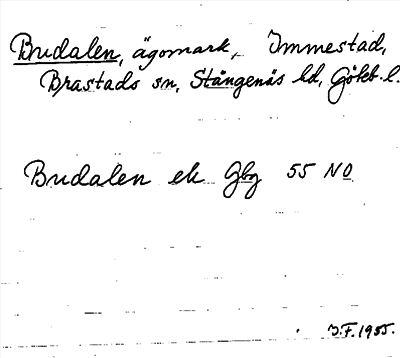 Brudalen, ägomark, Immestad,
Brastads sn, Stångenäs hd, Göteb. l.
Brudalen ek Gbg 55 NO
J.F. 1955.